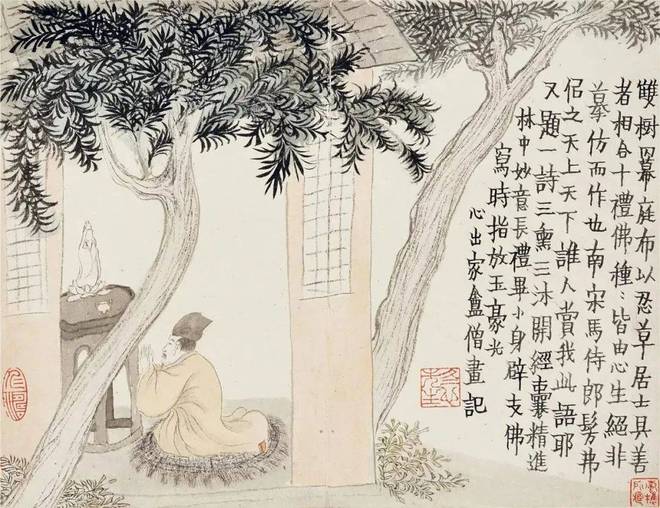 雙樹幕庭布以忍草居士具善
者相合十禮佛種〻皆由心生絕非
摹仿而作也南宋馬侍郎髣弗
侶之天上天下誰人賞我此語耶
又題一詩三熏三沐開經囊精進
林中妙意長禮畢小身辟支佛
寫時指放玉豪光
心出家盦僧畫記